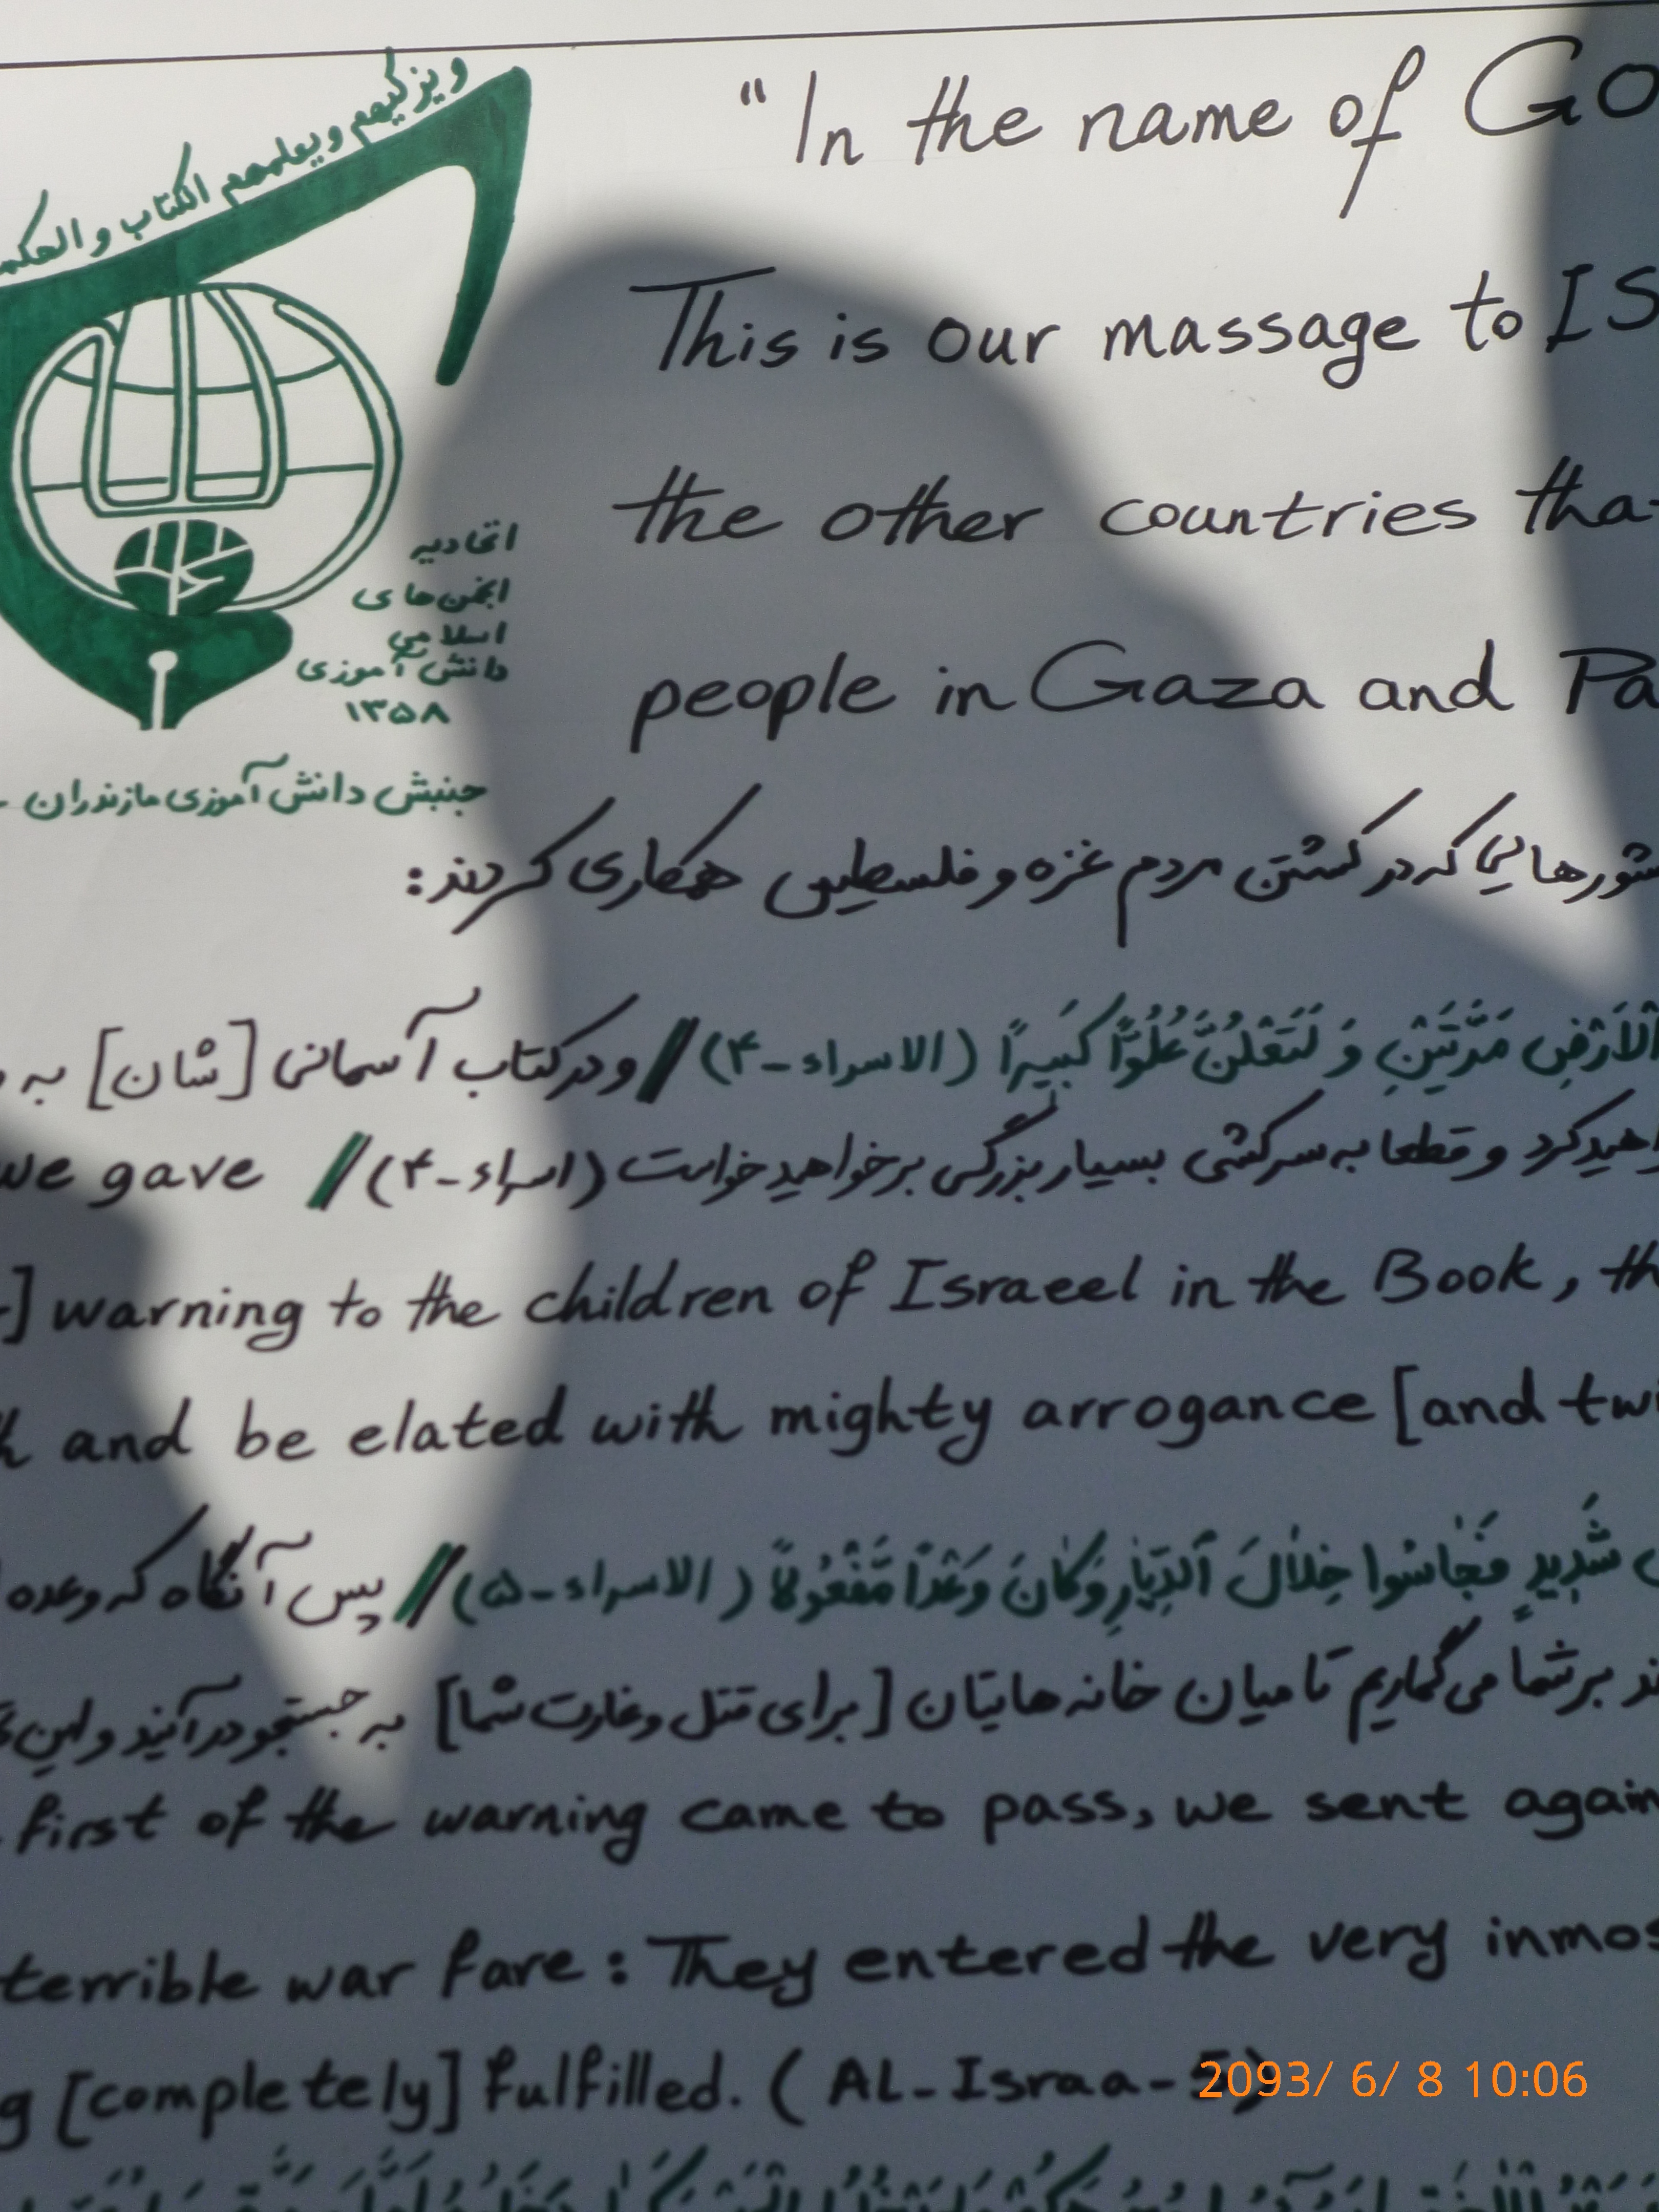 ویزکیهم ویعلمهم الکتاب والحکم
"In the name of GO
This is our massage to IS
the other countries tha
people in Gaza and Pa
اتحادیه
انجمن‌های
اسلامی
دانش آموزی
۱۳۵۸
جنبش دانش آموزی مازندران -
شورهایی که در کشتن مردم غزه و فلسطین همکاری کردند:
اَلْاَرْضِ مَرَّتَیْنِ وَ لَتَعْلُنَّ عُلُوًّا کَبیرًا (الاسراء-۴) // و در کتاب آسمانی [شان] به
اهیدکرد و قطعا به سرکشی بسیار بزرگی برخواهید خواست (اسراء-۴) // we gave
] warning to the children of Israeel in the Book, th
h and be elated with mighty arrogance [and twi
شَدیدٍ فَجٰاسُوا خِلٰالَ اَلدِّیٰارِ وَ کٰانَ وَعْدًا مَّفْعُولًا (الاسراء-۵) // پس آنگاه که وعده
ند بر شما می‌گماریم تا میان خانه‌هایتان [برای قتل و غارت شما] به جستجو درآیند و این
first of the warning came to pass, we sent again
terrible war fare: They entered the very inmos
g [completely] fulfilled. (AL-Israa-5)
2093/ 6/ 8 10:06